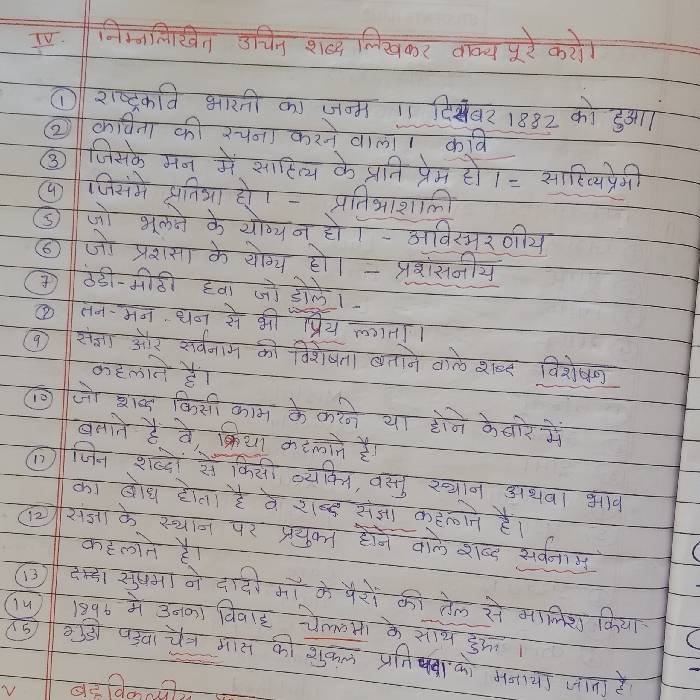 IV. निम्नलिखित उचित शब्द लिखकर वाक्य पूरे करो।
① राष्ट्रकवि भारती का जन्म 11 दिसंबर 1882 को हुआ।
② कविता की रचना करने वाला। कवि
③ जिसके मन में साहित्य के प्रति प्रेम हो। = साहित्यप्रेमी
④ जिसमें प्रतिभा हो। - प्रतिभाशाली
⑤ जो भूलने के योग्य न हो। - अविस्मरणीय
⑥ जो प्रशंसा के योग्य हो। - प्रशंसनीय
⑦ ठंडी-मीठी हवा जो डोले। -
⑧ तन-मन-धन से भी प्रिय लगता।
⑨ संज्ञा और सर्वनाम की विशेषता बताने वाले शब्द विशेषण
कहलाते है।
⑩ जो शब्द किसी काम के करने या होने के बारे में
बताते है वे, क्रिया कहलाते है।
⑪ जिन शब्दों से किसी व्यक्ति, वस्तु स्थान अथवा भाव
का बोध होता है वे शब्द संज्ञा कहलाते है।
⑫ संज्ञा के स्थान पर प्रयुक्त होने वाले शब्द सर्वनाम
कहलाते है।
⑬ सुषमा ने दादी माँ के पैरों की तेल से मालिश किया
⑭ 1896 मे उनका विवाह चेल्लमा के साथ हुआ।
⑮ गुडी पडवा चैत्र मास की शुक्ल प्रतिपदा को मनाया जाता है।
V